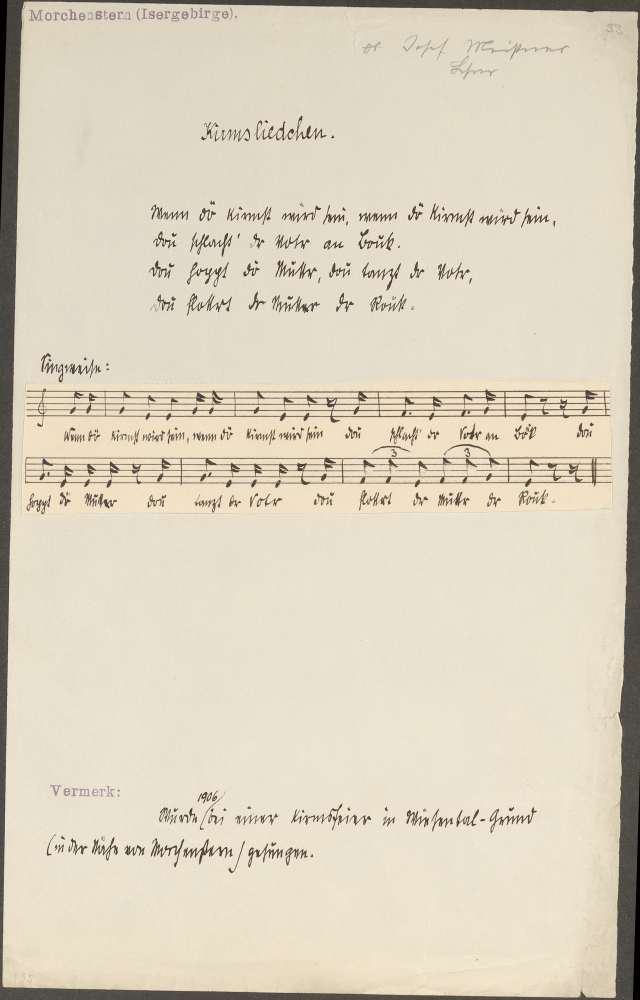 Morchenstern (Isergebirge).
53
Josef Meissner
Lehrer
Kirmsliedchen.
Wenn dö Kirmst wird sein, wenn dö Kirmst wird sein,
dou schlacht' dr Votr an Bouk.
Dou hoppt dö Muttr, dou tanzt dr Votr,
Dou flottrt dr Mutter dr Rouk.
Singweise:
Wenn dö Kirmst wird sein, wenn dö Kirmst wird sein dou schlacht' dr Votr an Bök dou
3 3
hoppt dö Mutter dou tanzt dr Votr dou flottrt dr Muttr dr Rouk.
Vermerk:
1906
Wurde bei einer Kirmsfeier in Wiesental-Grund
(in der Nähe von Morchenstern) gesungen.